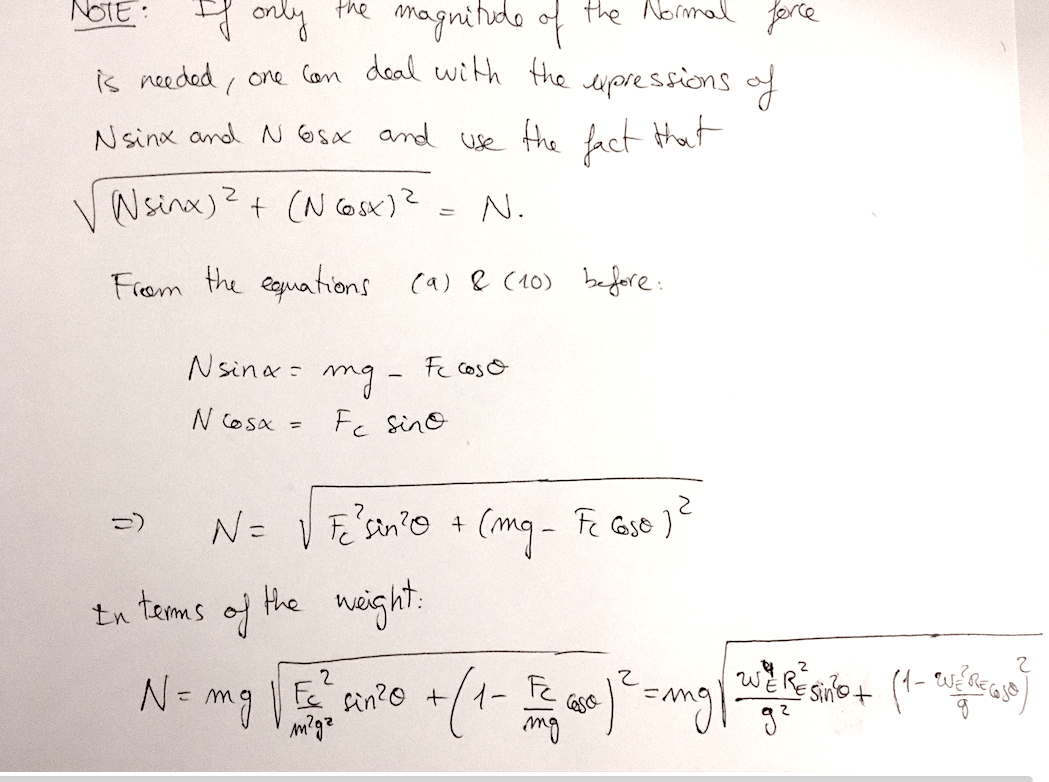 NOTE: If only the magnitude of the Normal force
is needed, one can deal with the expressions of
N sinα and N cosα and use the fact that
√((N sinα)² + (N cosα)²) = N.
From the equations (9) & (10) before:
N sinα = mg - Fc cosθ
N cosα = Fc sinθ
=> N = √(Fc² sin²θ + (mg - Fc cosθ)²)
In terms of the weight:
N = mg √(Fc²/m²g² sin²θ + (1 - Fc/mg cosθ)²) = mg √(ω_E⁴ R_E²/g² sin²θ + (1 - ω_E² R_E/g cosθ)²)